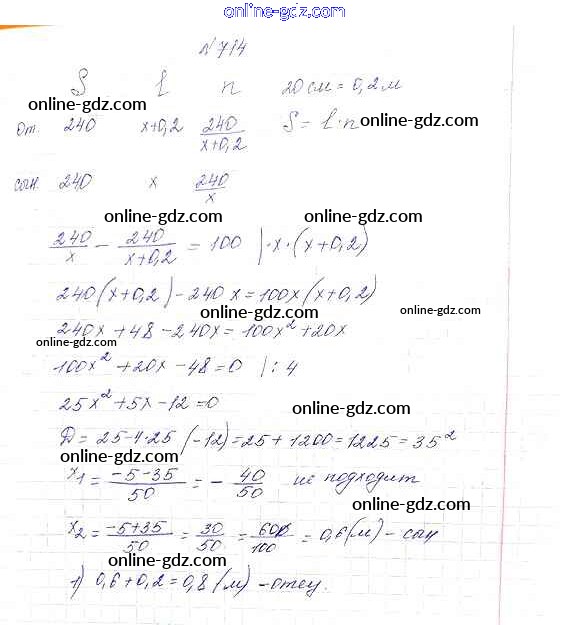 online-gdz.com
№714
S l n 20 см = 0,2 м
online-gdz.com
от. 240 x+0,2 240/(x+0,2) S = l·n online-gdz.com
сын. 240 x 240/x
online-gdz.com online-gdz.com
240/x - 240/(x+0,2) = 100 |·x·(x+0,2)
online-gdz.com online-gdz.com
240(x+0,2) - 240x = 100x(x+0,2)
online-gdz.com
240x + 48 - 240x = 100x² + 20x
online-gdz.com
100x² + 20x - 48 = 0 |:4
25x² + 5x - 12 = 0
online-gdz.com
D = 25-4·25(-12) = 25 + 1200 = 1225 = 35²
online-gdz.com
x₁ = (-5-35)/50 = - 40/50 не подходит
online-gdz.com
x₂ = (-5+35)/50 = 30/50 = 60/100 = 0,6 (м) - сын
online-gdz.com
1) 0,6 + 0,2 = 0,8 (м) - отец.
online-gdz.com